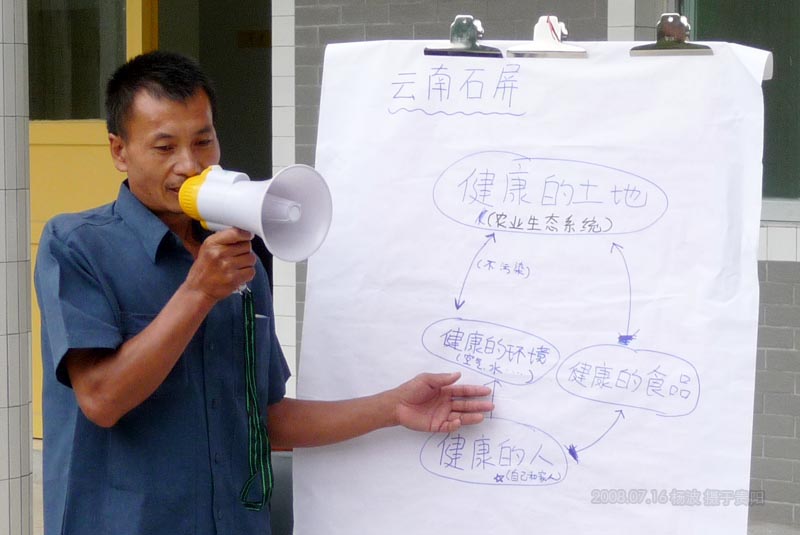 云南石屏
健康的土地
(农业生态系统)
(不污染)
健康的环境
(空气、水……)
健康的食品
健康的人
(自己和家人)
2008.07.16 杨波 摄于贵阳